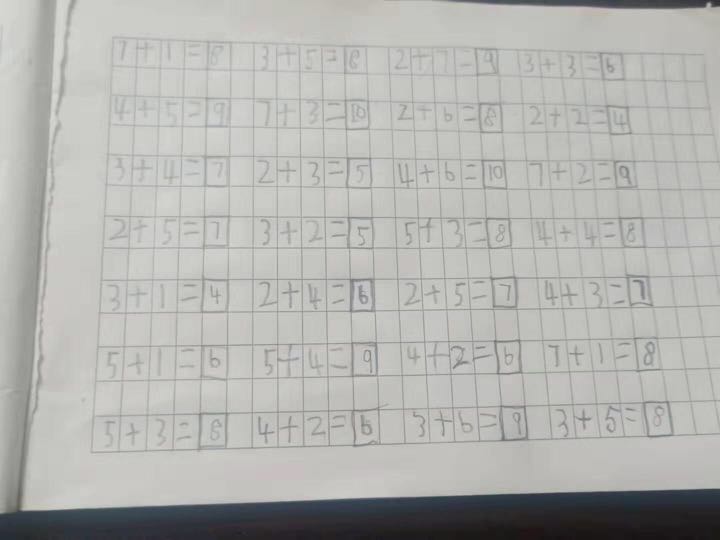 7+1=8 3+5=8 2+7=9 3+3=6
4+5=9 7+3=10 2+6=8 2+2=4
3+4=7 2+3=5 4+6=10 7+2=9
2+5=7 3+2=5 5+3=8 4+4=8
3+1=4 2+4=6 2+5=7 4+3=7
5+1=6 5+4=9 4+2=6 7+1=8
5+3=8 4+2=6 3+6=9 3+5=8